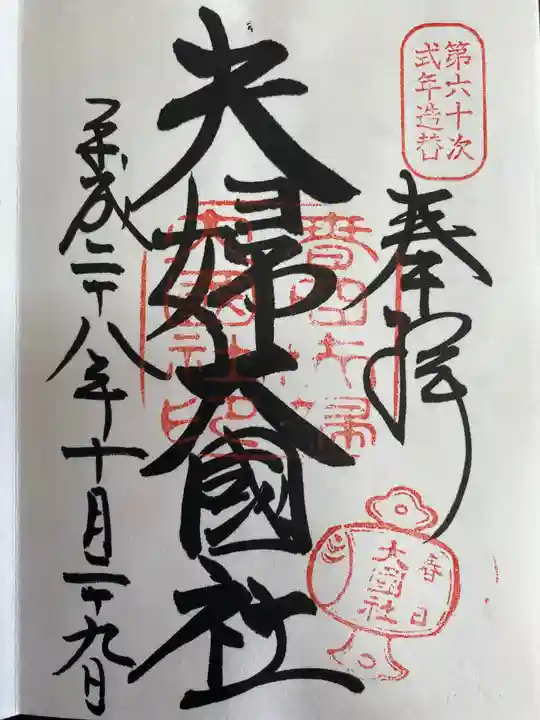 第六十次
式年造替
奉拝
夫婦大國社
春日夫婦
大國社印
春日
大国社
平成二十八年十月二十九日